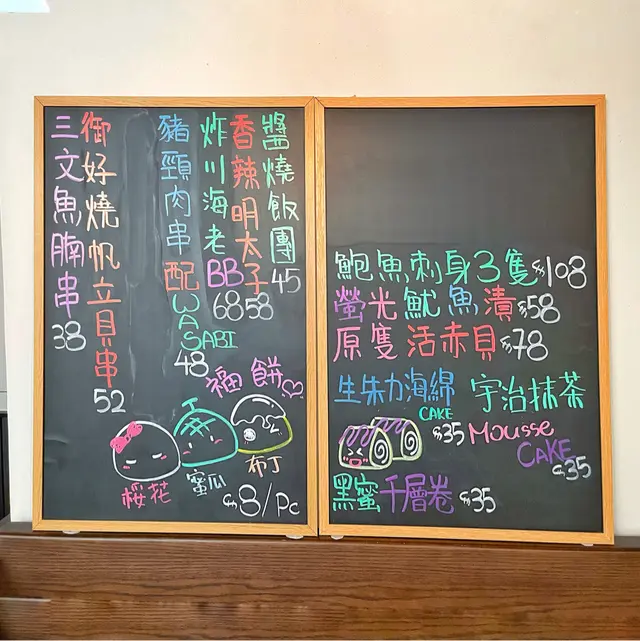 醬燒飯團 45
香辣明太子 58
炸川海老BB 68
豬頸肉串配WASABI 48
御好燒帆立貝串 52
三文魚腩串 38
福餅
桜花
蜜瓜
布丁
$8/Pc
鮑魚刺身3隻 $108
螢光魷魚漬 $58
原隻活赤貝 $78
生朱力海綿
CAKE
$35
宇治抹茶
Mousse
CAKE
$35
黑蜜千層卷 $35